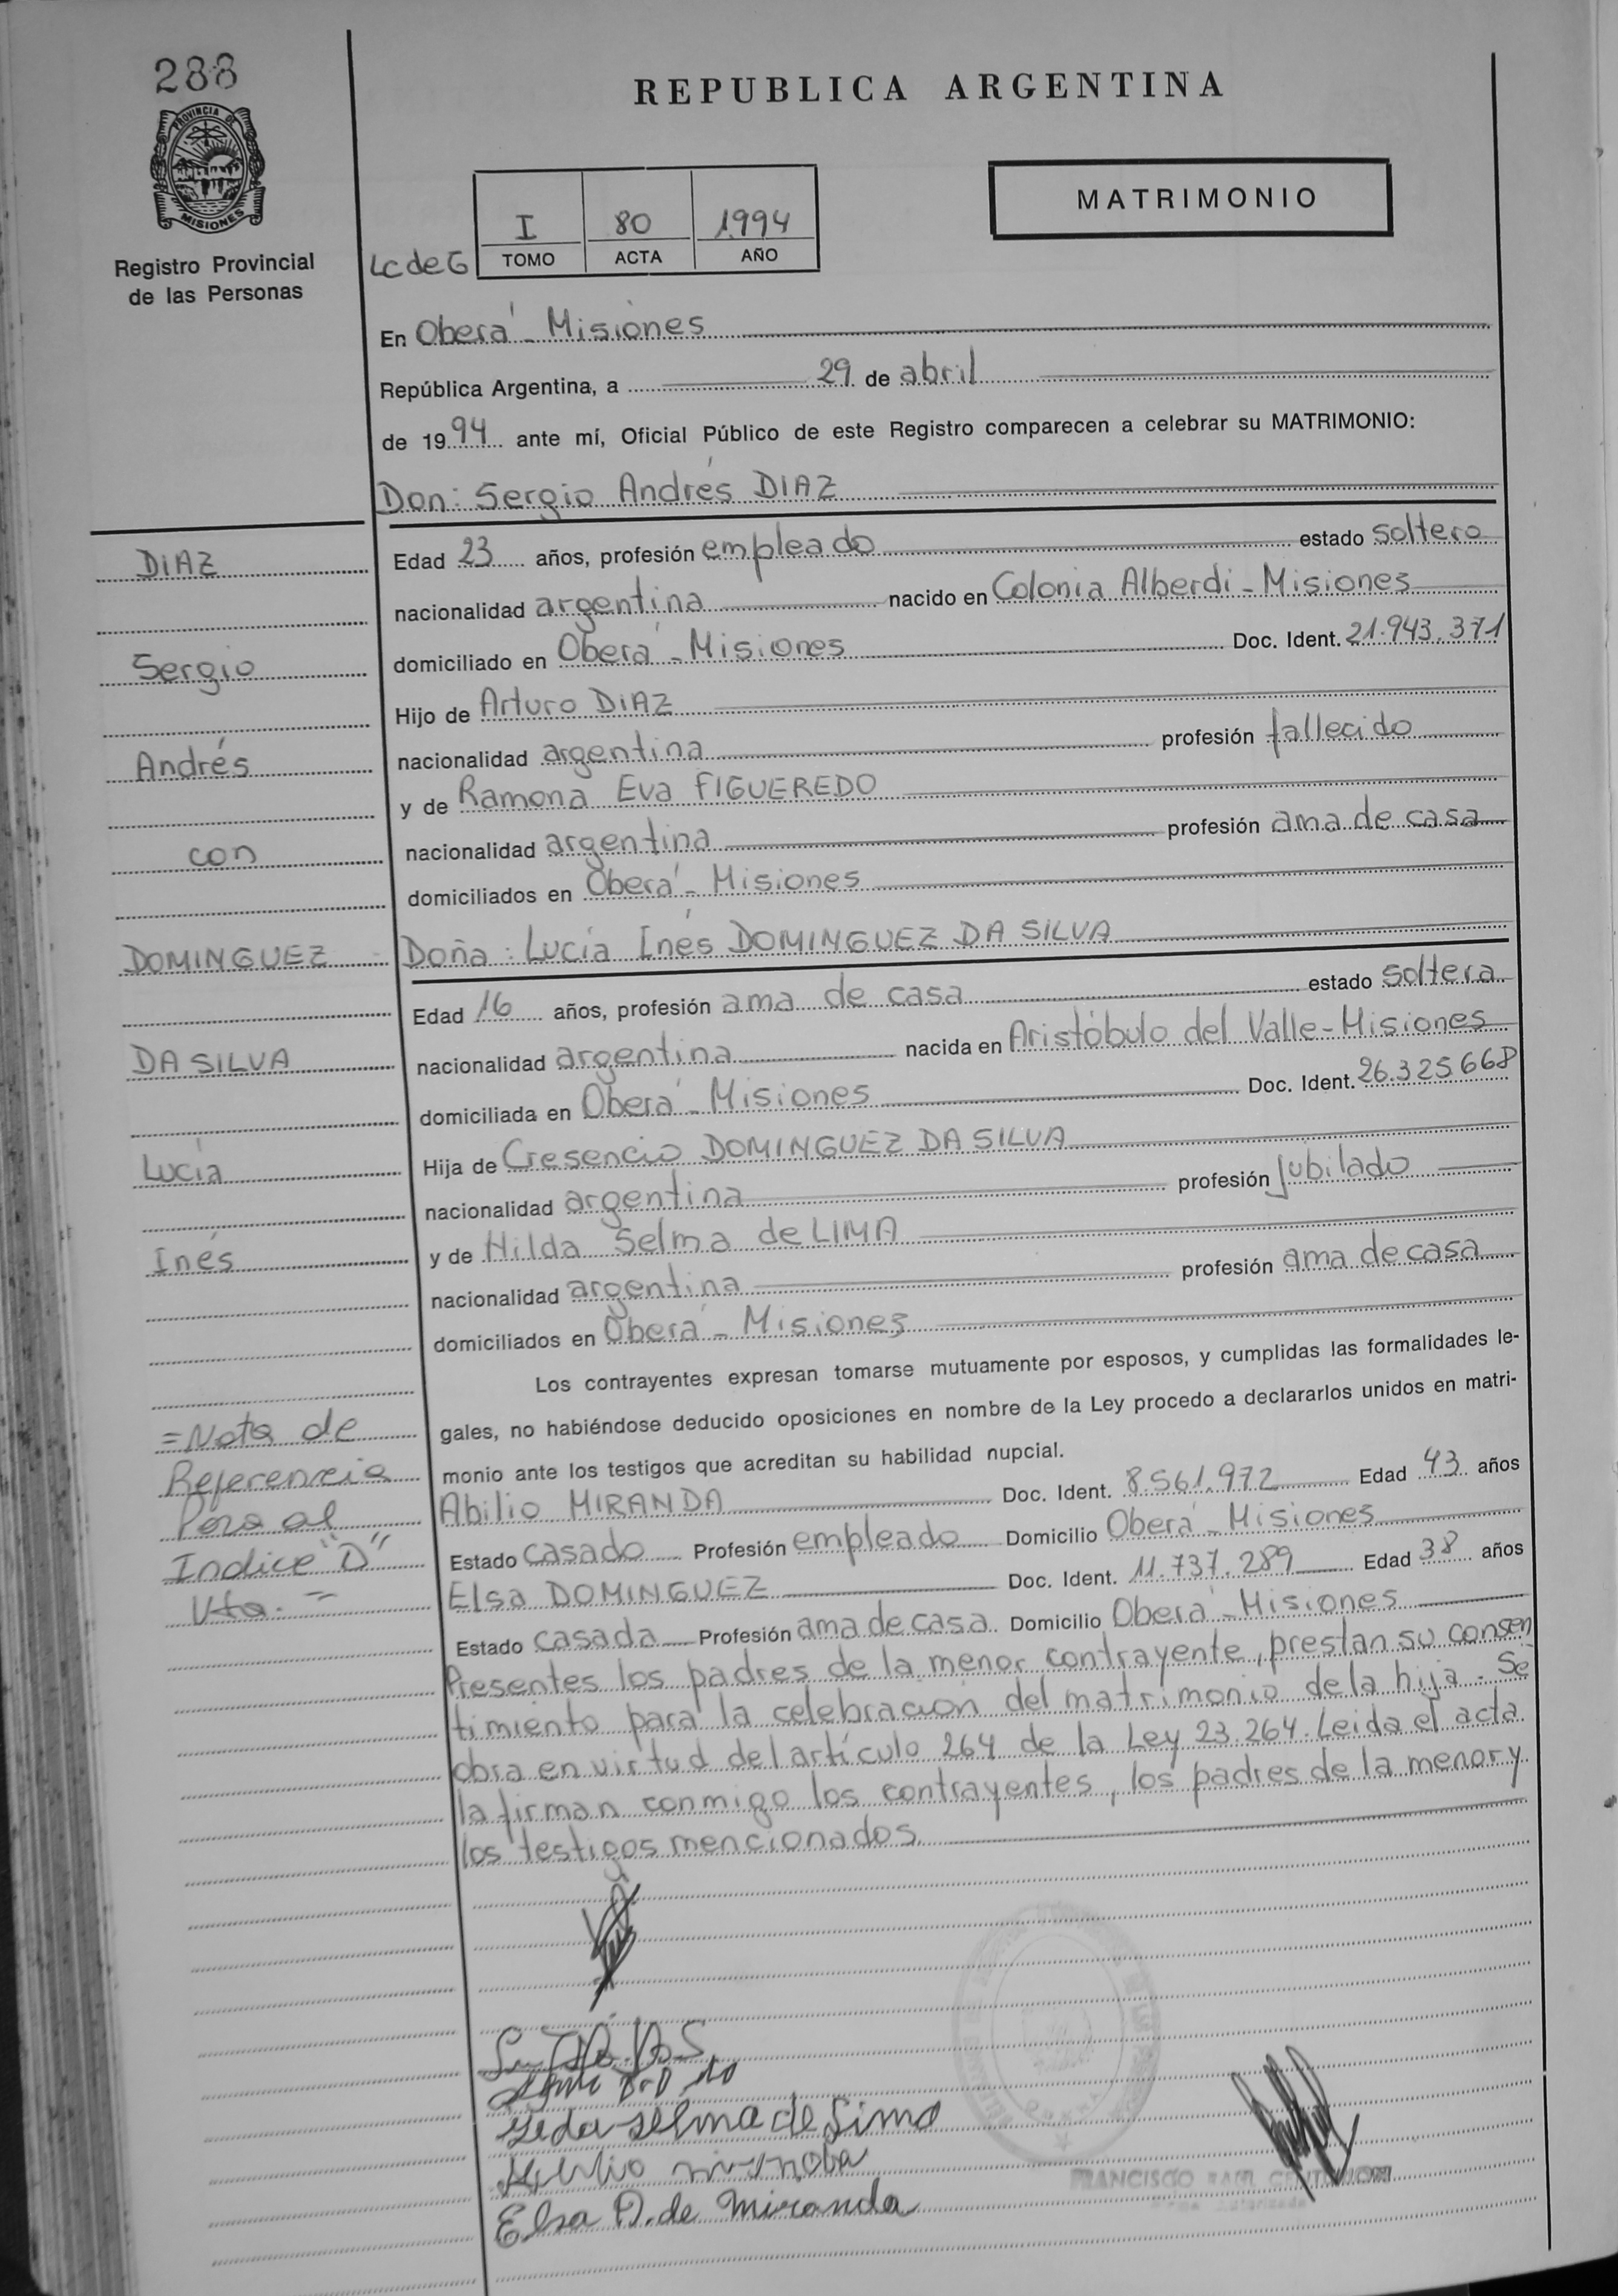 288
REPUBLICA ARGENTINA
PROVINCIA DE
MISIONES
Registro Provincial
de las Personas
LC de G
I 80 1994
TOMO ACTA AÑO
MATRIMONIO
En Oberá - Misiones
República Argentina, a 29 de abril
de 1994 ante mí, Oficial Público de este Registro comparecen a celebrar su MATRIMONIO:
Don: Sergio Andrés DIAZ
Edad 23 años, profesión empleado estado soltero
nacionalidad argentina nacido en Colonia Alberdi - Misiones
domiciliado en Oberá - Misiones Doc. Ident. 21.943.371
Hijo de Arturo DIAZ
nacionalidad argentina profesión fallecido
y de Ramona Eva FIGUEREDO
nacionalidad argentina profesión ama de casa
domiciliados en Oberá - Misiones
Doña: Lucía Inés DOMINGUEZ DA SILVA
Edad 16 años, profesión ama de casa estado soltera
nacionalidad argentina nacida en Aristóbulo del Valle - Misiones
domiciliada en Oberá - Misiones Doc. Ident. 26.325.668
Hija de Cresencio DOMINGUEZ DA SILVA
nacionalidad argentina profesión jubilado
y de Hilda Selma de LIMA
nacionalidad argentina profesión ama de casa
domiciliados en Oberá - Misiones
Los contrayentes expresan tomarse mutuamente por esposos, y cumplidas las formalidades le-
gales, no habiéndose deducido oposiciones en nombre de la Ley procedo a declararlos unidos en matri-
monio ante los testigos que acreditan su habilidad nupcial.
Abilio MIRANDA Doc. Ident. 8.561.972 Edad 43 años
Estado casado Profesión empleado Domicilio Oberá - Misiones
Elsa DOMINGUEZ Doc. Ident. 11.737.289 Edad 38 años
Estado casada Profesión ama de casa Domicilio Oberá - Misiones
Presentes los padres de la menor contrayente, prestan su consen
timiento para la celebración del matrimonio de la hija. Se
obra en virtud del artículo 264 de la Ley 23.264. Leída el acta
la firman conmigo los contrayentes, los padres de la menor y
los testigos mencionados
DIAZ
Sergio
Andrés
con
DOMINGUEZ
DA SILVA
Lucía
Inés
=Nota de
Referencia
Pasa al
Indice "D"
Vta. =
selma de Lima
Elsa D. de Miranda
FRANCISCO